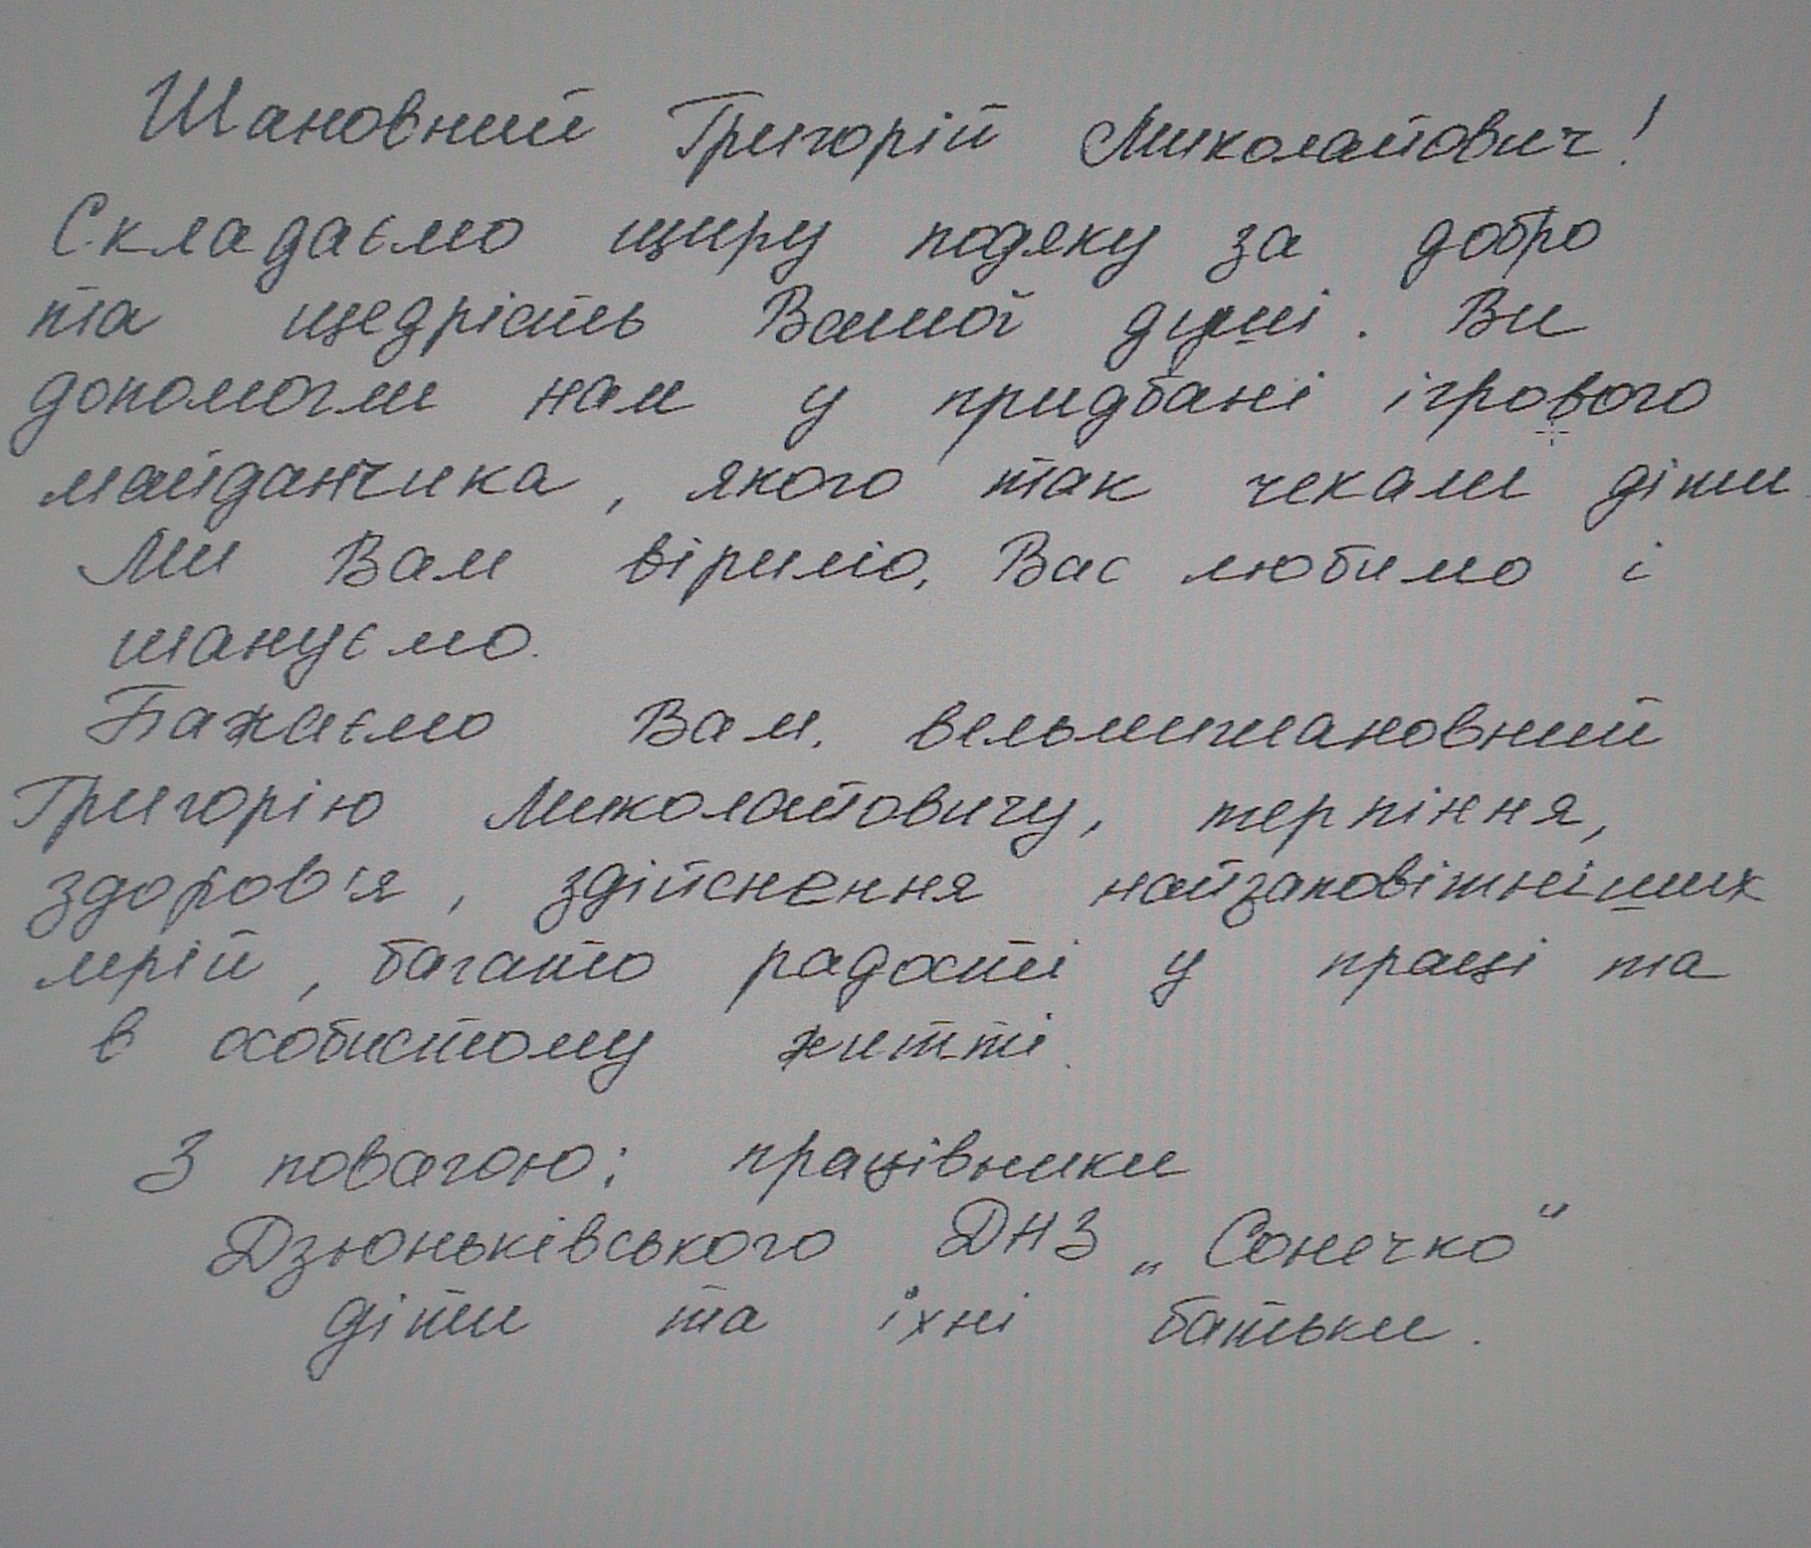 Шановний Григорій Миколайович!
Складаємо щиру подяку за добро
та щедрість Вашої душі. Ви
допомогли нам у придбані ігрового
майданчика, якого так чекали діти
Ми Вам віримо, Вас любимо і
шануємо.
Бажаємо Вам, вельмишановний
Григорію Миколайовичу, терпіння,
здоров'я, здійснення найзаповітніших
мрій, багато радості у праці та
в особистому житті.
З повагою: працівники
Дзюньківського ДНЗ „Сонечко“
діти та їхні батьки.